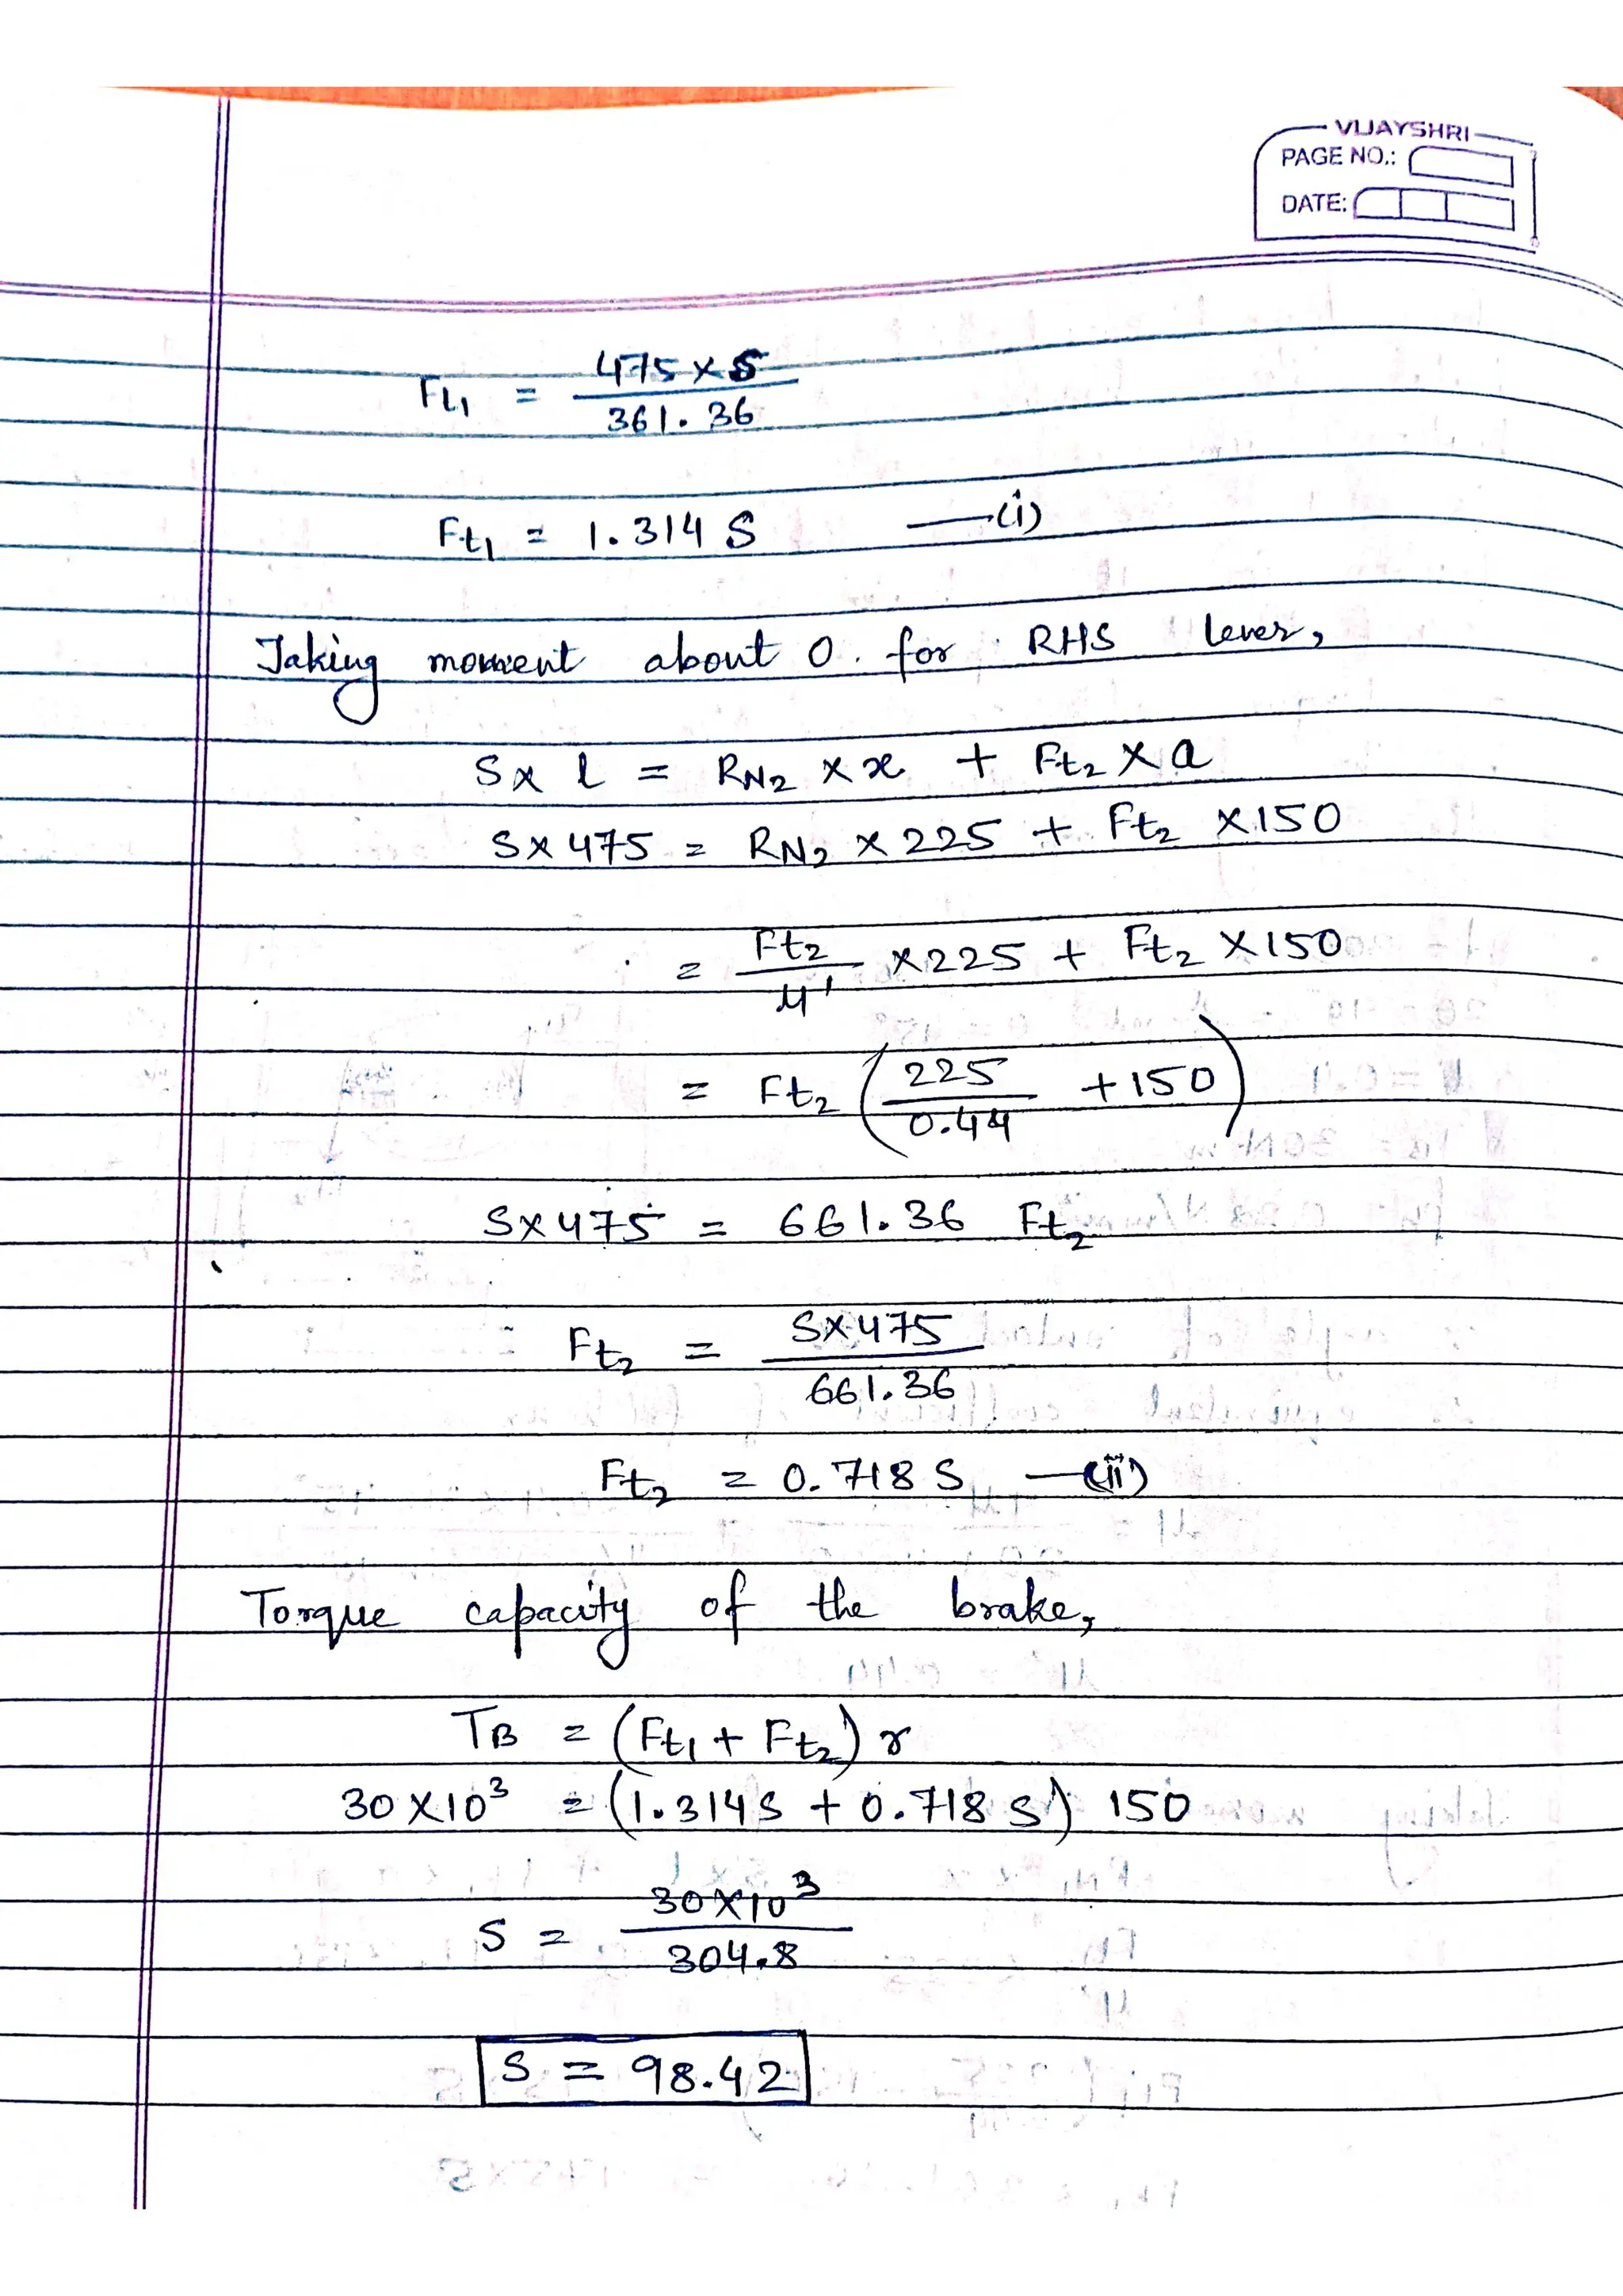 VIJAYSHRI
PAGE NO.:
DATE:
Ft₁ = 475 × S / 361.36
Ft₁ = 1.314 S —(i)
Taking moment about O. for RHS lever,
S × l = RN₂ × x + Ft₂ × a
S × 475 = RN₂ × 225 + Ft₂ × 150
= Ft₂ / μ' × 225 + Ft₂ × 150
= Ft₂ ( 225 / 0.44 + 150 )
S × 475 = 661.36 Ft₂
Ft₂ = S × 475 / 661.36
Ft₂ = 0.718 S —(ii)
Torque capacity of the brake,
TB = (Ft₁ + Ft₂) r
30 × 10³ = (1.314 S + 0.718 S) 150
S = 30 × 10³ / 304.8
S = 98.42